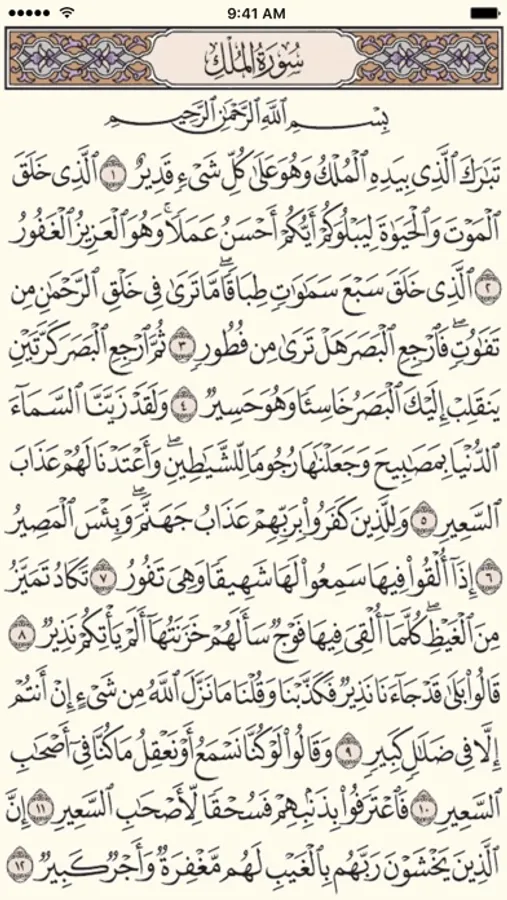 9:41 AM
سُورَةُ الْمُلْكِ
بِسْمِ ٱللَّهِ ٱلرَّحْمَٰنِ ٱلرَّحِيمِ
تَبَٰرَكَ ٱلَّذِى بِيَدِهِ ٱلْمُلْكُ وَهُوَ عَلَىٰ كُلِّ شَىْءٍ قَدِيرٌ ١ ٱلَّذِى خَلَقَ
ٱلْمَوْتَ وَٱلْحَيَوٰةَ لِيَبْلُوَكُمْ أَيُّكُمْ أَحْسَنُ عَمَلًا ۚ وَهُوَ ٱلْعَزِيزُ ٱلْغَفُورُ
٢ ٱلَّذِى خَلَقَ سَبْعَ سَمَٰوَٰتٍ طِبَاقًا ۖ مَّا تَرَىٰ فِى خَلْقِ ٱلرَّحْمَٰنِ مِن
تَفَٰوُتٍ ۖ فَٱرْجِعِ ٱلْبَصَرَ هَلْ تَرَىٰ مِن فُطُورٍ ٣ ثُمَّ ٱرْجِعِ ٱلْبَصَرَ كَرَّتَيْنِ
يَنقَلِبْ إِلَيْكَ ٱلْبَصَرُ خَاسِئًا وَهُوَ حَسِيرٌ ٤ وَلَقَدْ زَيَّنَّا ٱلسَّمَآءَ
ٱلدُّنْيَا بِمَصَٰبِيحَ وَجَعَلْنَٰهَا رُجُومًا لِّلشَّيَٰطِينِ ۖ وَأَعْتَدْنَا لَهُمْ عَذَابَ
ٱلسَّعِيرِ ٥ وَلِلَّذِينَ كَفَرُوا۟ بِرَبِّهِمْ عَذَابُ جَهَنَّمَ ۖ وَبِئْسَ ٱلْمَصِيرُ
٦ إِذَآ أُلْقُوا۟ فِيهَا سَمِعُوا۟ لَهَا شَهِيقًا وَهِىَ تَفُورُ ٧ تَكَادُ تَمَيَّزُ
مِنَ ٱلْغَيْظِ ۖ كُلَّمَآ أُلْقِىَ فِيهَا فَوْجٌ سَأَلَهُمْ خَزَنَتُهَآ أَلَمْ يَأْتِكُمْ نَذِيرٌ ٨
قَالُوا۟ بَلَىٰ قَدْ جَآءَنَا نَذِيرٌ فَكَذَّبْنَا وَقُلْنَا مَا نَزَّلَ ٱللَّهُ مِن شَىْءٍ إِنْ أَنتُمْ
إِلَّا فِى ضَلَٰلٍ كَبِيرٍ ٩ وَقَالُوا۟ لَوْ كُنَّا نَسْمَعُ أَوْ نَعْقِلُ مَا كُنَّا فِىٓ أَصْحَٰبِ
ٱلسَّعِيرِ ١٠ فَٱعْتَرَفُوا۟ بِذَنۢبِهِمْ فَسُحْقًا لِّأَصْحَٰبِ ٱلسَّعِيرِ ١١ إِنَّ
ٱلَّذِينَ يَخْشَوْنَ رَبَّهُم بِٱلْغَيْبِ لَهُم مَّغْفِرَةٌ وَأَجْرٌ كَبِيرٌ ١٢